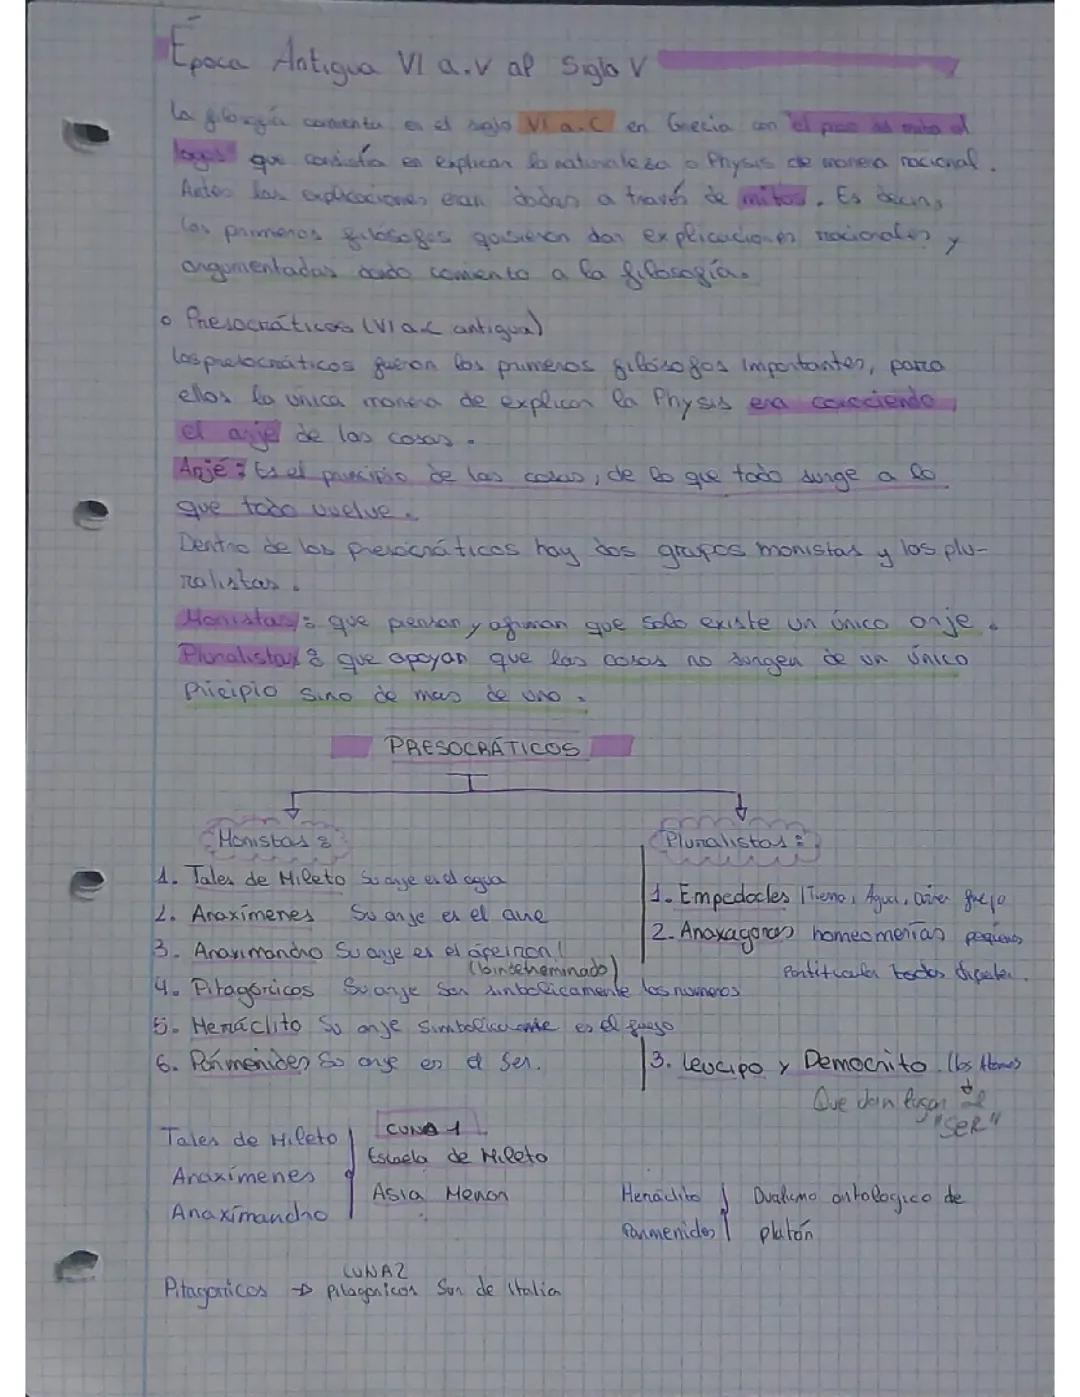 Época Antigua VI a.v al Siglo V
La filosofía comienta en el siglo VI a.C en Grecia con "el paso del mito al
logos" que consistía en explicar la naturaleza o Physis de manera racional.
Antes las explicaciones eran dadas a través de mitos. Es decir,
los primeros filósofos quisieron dar explicaciones racionales y
argumentadas dando comiento a la filosofía.
Presocráticos (VI a.C antigua)
Los presocráticos fueron los primeros filósofos importantes, para
ellos la única manera de explicar la Physis era conociendo
el arje de las cosas.
Arjé: Es el principio de las cosas, de lo que todo surge a lo
que todo vuelve.
Dentro de los presocráticos hay dos grupos monistas y los plu-
ralistas.
Monistas: que piensan y afirman que solo existe un único arje.
Pluralistas: que apoyan que las cosas no surgen de un único
pricipio sino de mas de uno.
PRESOCRÁTICOS
Monistas:
1. Tales de Mileto Su arje es el agua
2. Anaxímenes Su arje es el aire
3. Anaximandro Su arje es el ápeiron
(lo indeterminado)
4. Pitagóricos Su arje son simbolicamente los numeros
5. Heráclito Su arje simbolicamente es el fuego
6. Parmenides Su arje es el Ser.
Pluralistas:
1. Empedocles (Tierra, Agua, aire, fuego
2. Anaxagoras homeomerías pequeñas
todas
3. Leucipo y Democrito (los Atomos
Que dan lugar al
"SER"
Tales de Mileto
Anaxímenes
Anaximandro
CUNA 1
Escuela de Mileto
Asia Menor
Heráclito
Parmenides
Dualismo ontologico de
platón
CUNA 2
Pitagoricos → pitagoricos Son de Italia